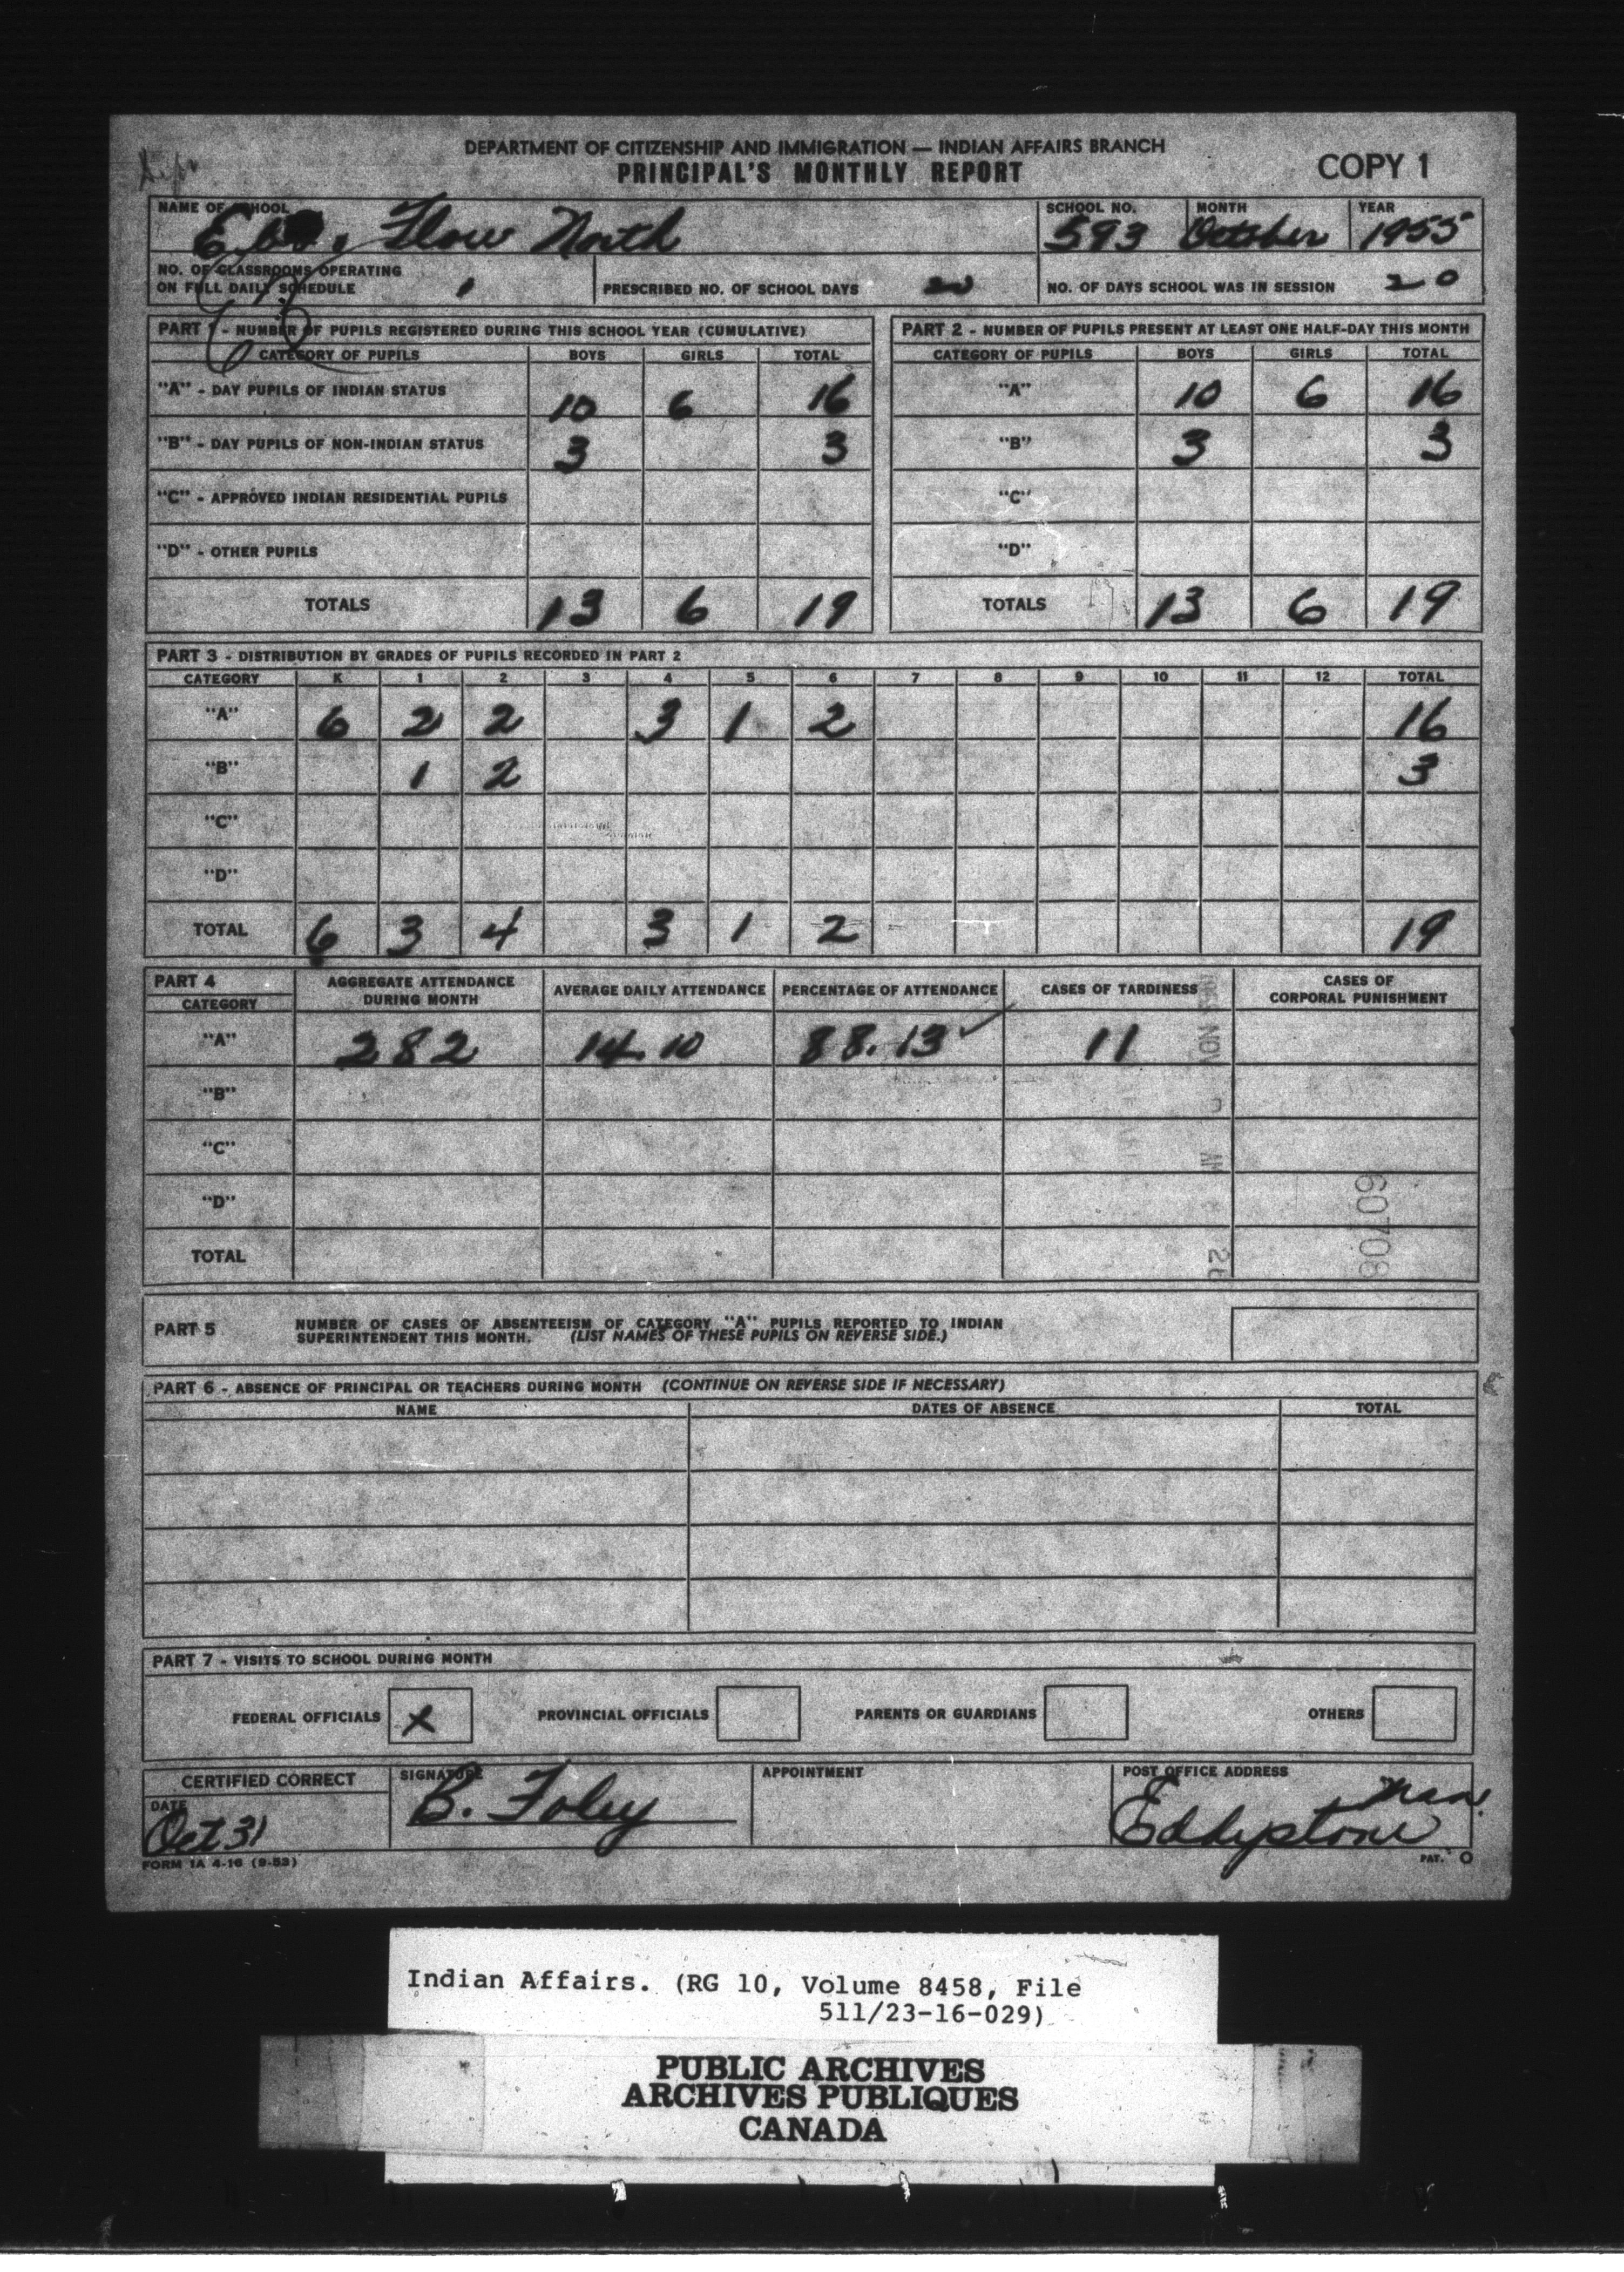 DEPARTMENT OF CITIZENSHIP AND IMMIGRATION — INDIAN AFFAIRS BRANCH
PRINCIPAL'S MONTHLY REPORT COPY 1
NAME OF SCHOOL SCHOOL NO. MONTH YEAR
Flow North 593 October 1955
NO. OF CLASSROOMS OPERATING
ON FULL DAILY SCHEDULE 1 PRESCRIBED NO. OF SCHOOL DAYS 20 NO. OF DAYS SCHOOL WAS IN SESSION 20
PART 1 - NUMBER OF PUPILS REGISTERED DURING THIS SCHOOL YEAR (CUMULATIVE)
CATEGORY OF PUPILS BOYS GIRLS TOTAL
"A" - DAY PUPILS OF INDIAN STATUS 10 6 16
"B" - DAY PUPILS OF NON-INDIAN STATUS 3 3
"C" - APPROVED INDIAN RESIDENTIAL PUPILS
"D" - OTHER PUPILS
TOTALS 13 6 19
PART 2 - NUMBER OF PUPILS PRESENT AT LEAST ONE HALF-DAY THIS MONTH
CATEGORY OF PUPILS BOYS GIRLS TOTAL
"A" 10 6 16
"B" 3 3
"C"
"D"
TOTALS 13 6 19
PART 3 - DISTRIBUTION BY GRADES OF PUPILS RECORDED IN PART 2
CATEGORY K 1 2 3 4 5 6 7 8 9 10 11 12 TOTAL
"A" 6 2 2 3 1 2 16
"B" 1 2 3
"C"
"D"
TOTAL 6 3 4 3 1 2 19
PART 4
CATEGORY AGGREGATE ATTENDANCE DURING MONTH AVERAGE DAILY ATTENDANCE PERCENTAGE OF ATTENDANCE CASES OF TARDINESS CASES OF CORPORAL PUNISHMENT
"A" 282 14.10 88.13 ✓ 11
"B"
"C"
"D"
TOTAL
NOV
26
60708
PART 5 NUMBER OF CASES OF ABSENTEEISM OF CATEGORY "A" PUPILS REPORTED TO INDIAN
SUPERINTENDENT THIS MONTH. (LIST NAMES OF THESE PUPILS ON REVERSE SIDE.)
PART 6 - ABSENCE OF PRINCIPAL OR TEACHERS DURING MONTH (CONTINUE ON REVERSE SIDE IF NECESSARY)
NAME DATES OF ABSENCE TOTAL
PART 7 - VISITS TO SCHOOL DURING MONTH
FEDERAL OFFICIALS X PROVINCIAL OFFICIALS PARENTS OR GUARDIANS OTHERS
CERTIFIED CORRECT SIGNATURE APPOINTMENT POST OFFICE ADDRESS
DATE
Oct 31 B. Foley Eddystone Man.
FORM IA 4-16 (9-53) PAT. O
Indian Affairs. (RG 10, Volume 8458, File
511/23-16-029)
PUBLIC ARCHIVES
ARCHIVES PUBLIQUES
CANADA